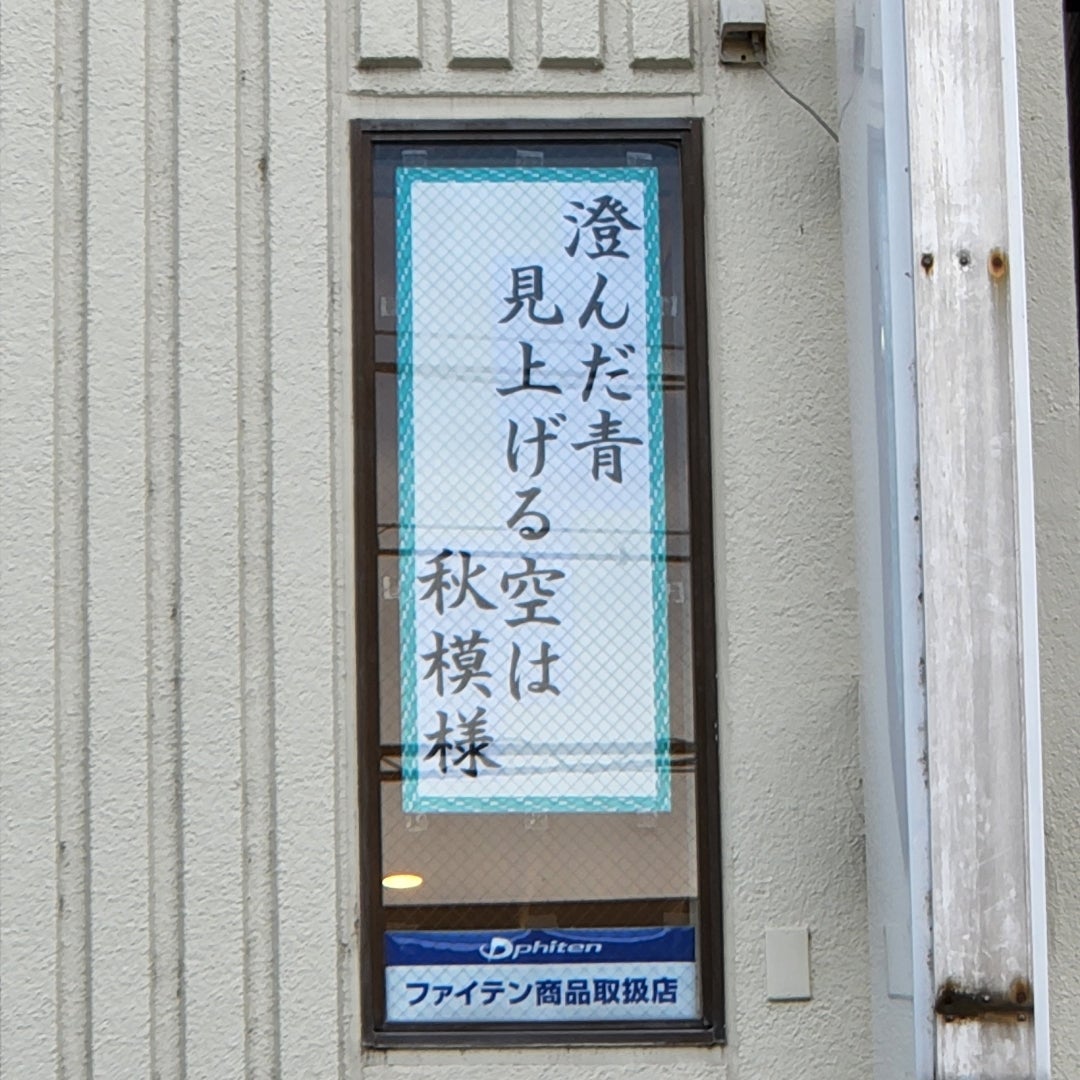 澄んだ青
見上げる空は
秋模様
phiten
ファイテン商品取扱店